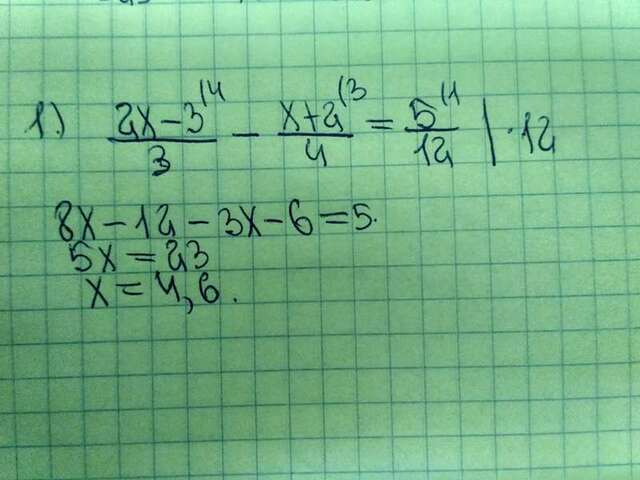 1.) (2x-3)/3 ⁽⁴ - (x+2)/4 ⁽³ = 5/12 ⁽¹ | ·12
8x-12-3x-6=5.
5x=23
x=4,6.